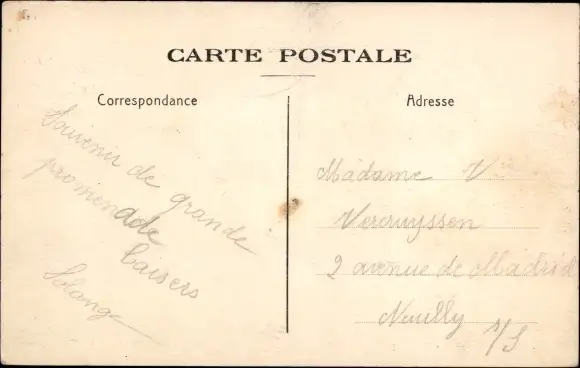 CARTE POSTALE
Correspondance
Adresse
Souvenir de grande
promenade
baisers
Solange
Madame V
Vercruyssen
2 avenue de Madrid
Neuilly
s/S